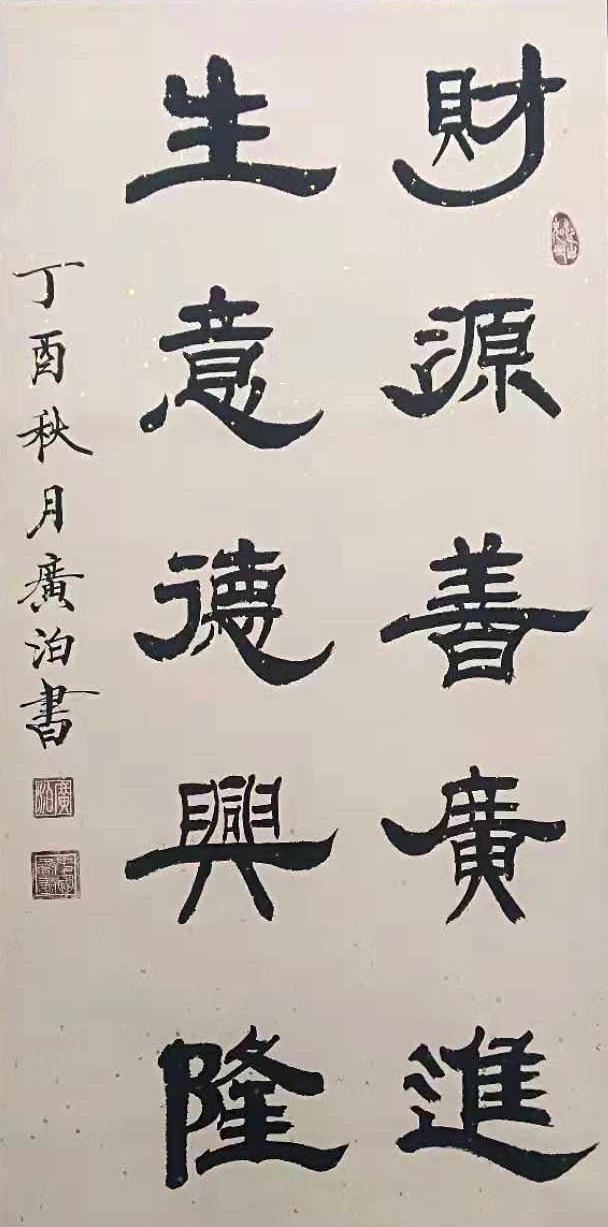 財源善廣進
生意德興隆
丁酉秋月廣泊書
廣泊